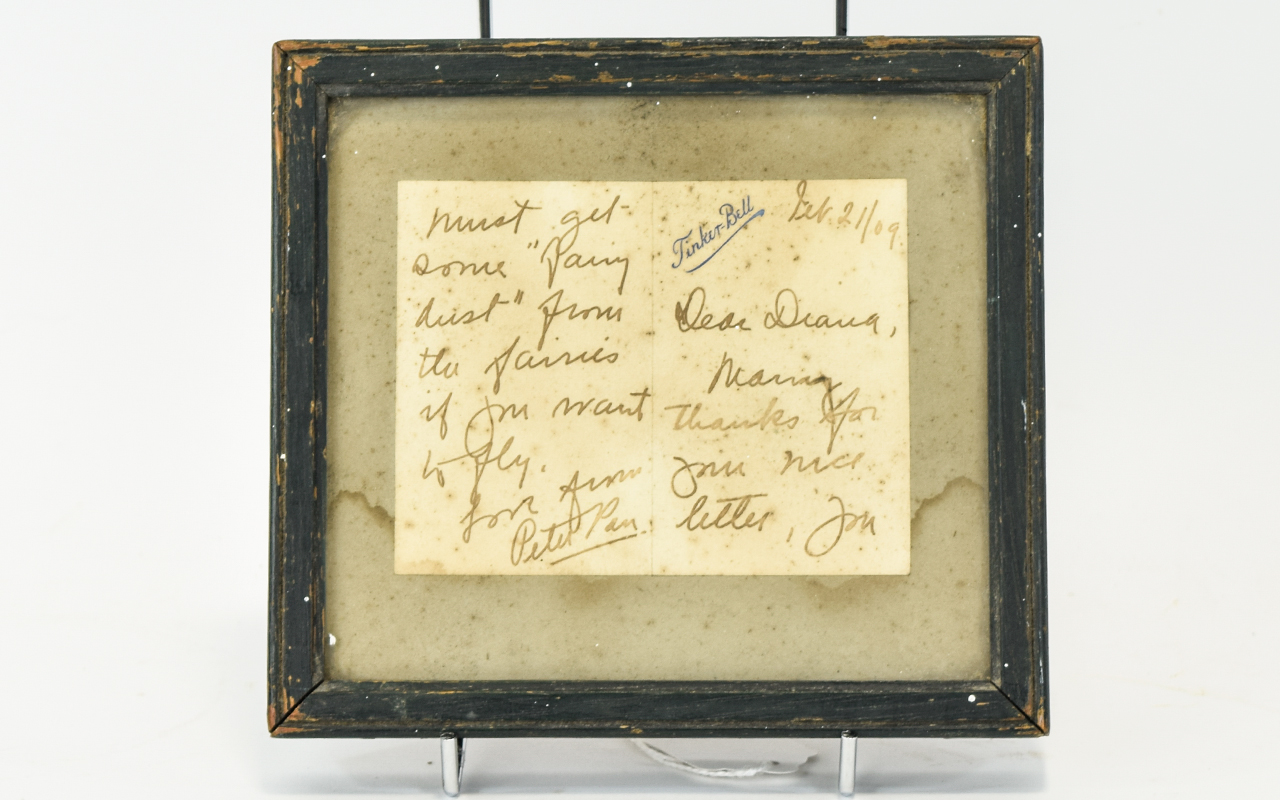 Tinker-Bell
Feb. 21/09.
Dear Diana,
Many
thanks for
your nice
letter, you
must get
some "Fairy
dust" from
the fairies
if you want
to fly.
Love from
Peter Pan.